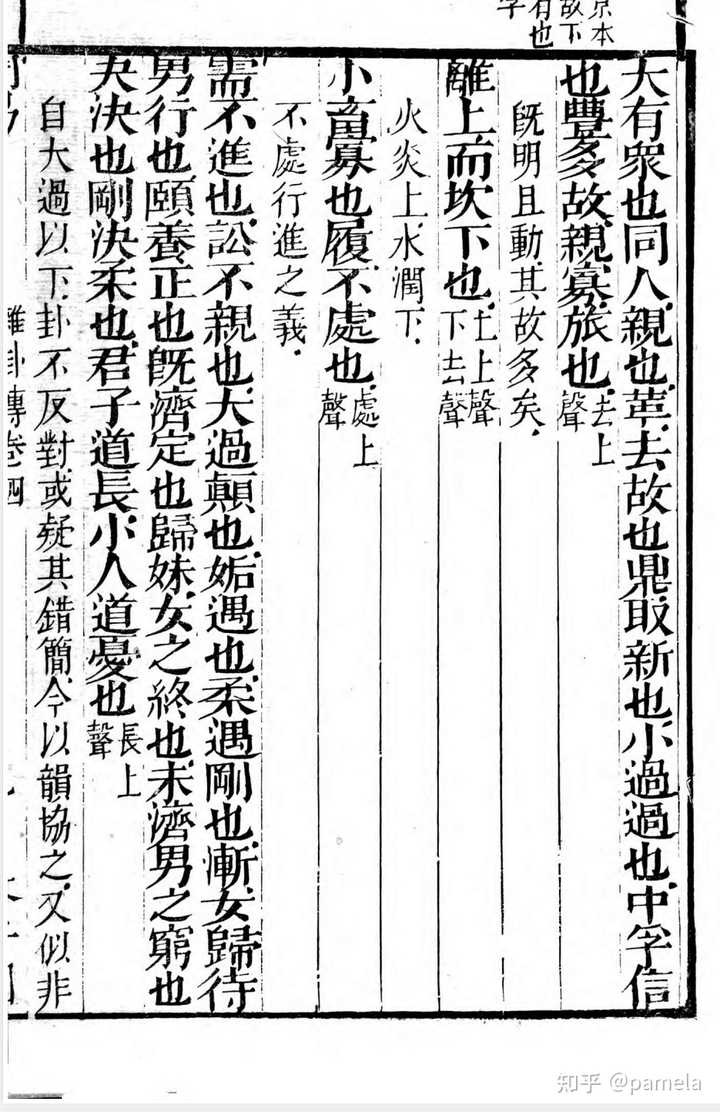 京本
故下
有也
字
大有衆也同人.親也.革.去故也鼎.取新也.小過過也.中孚信
也豐多故.親寡.旅也.去上聲
既明且動其故多矣.
離上.而坎下也.上上聲下去聲
火炎上.水潤下.
小畜寡也.履不處也.處上聲
不處.行進之義.
需不進也.訟不親也.大過顛也.姤遇也.柔遇剛也.漸女歸待
男行也.頤養正也既濟定也歸妹.女之終也.未濟男之窮也
夬決也剛決柔也.君子道長.小人道憂也長上聲
自大過以下.卦不反對.或疑其錯簡.今以韻協之.又似非
雜卦傳卷四
知乎 @pamela